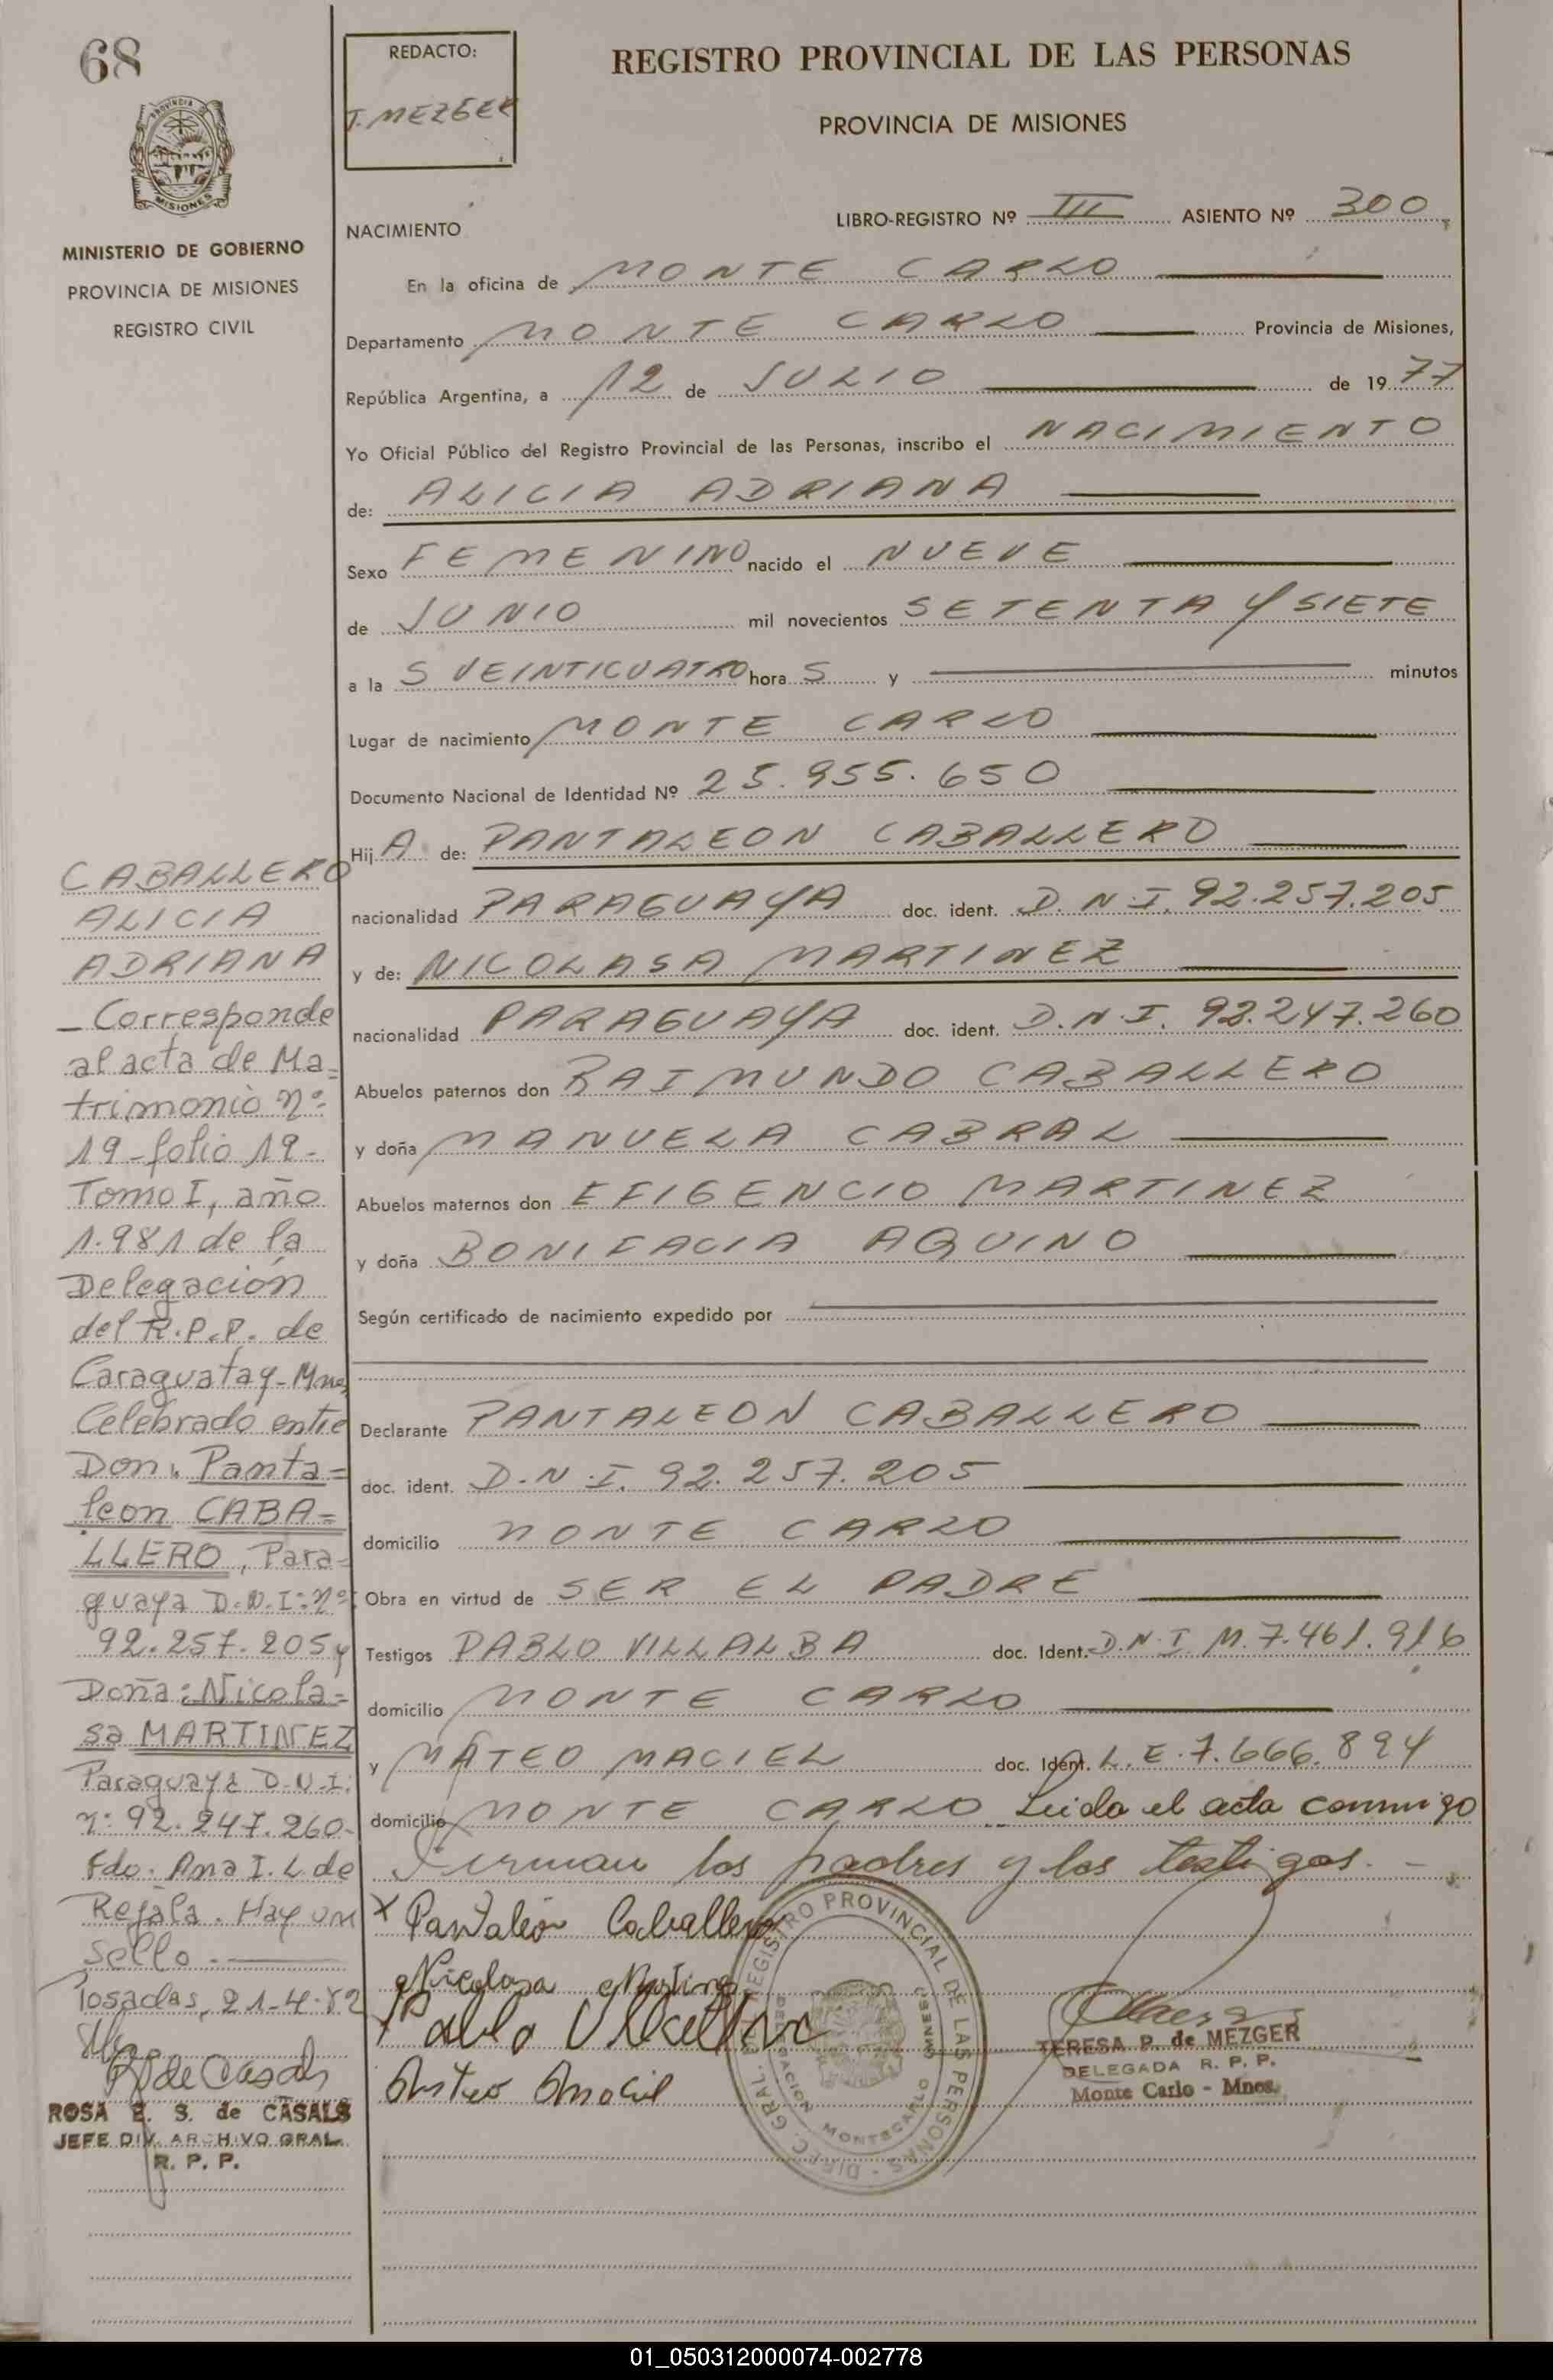 68
REDACTO:
T. MEZGER
REGISTRO PROVINCIAL DE LAS PERSONAS
PROVINCIA DE MISIONES
MISIONES
MINISTERIO DE GOBIERNO
PROVINCIA DE MISIONES
REGISTRO CIVIL
NACIMIENTO
LIBRO-REGISTRO Nº III ASIENTO Nº 300
En la oficina de MONTE CARLO
Departamento MONTE CARLO Provincia de Misiones,
República Argentina, a 12 de JULIO de 1977
Yo Oficial Público del Registro Provincial de las Personas, inscribo el NACIMIENTO
de: ALICIA ADRIANA
Sexo FEMENINO nacido el NUEVE
de JUNIO mil novecientos SETENTA Y SIETE
a la S VEINTICUATRO hora S y minutos
Lugar de nacimiento MONTE CARLO
Documento Nacional de Identidad Nº 25.955.650
Hij A de: PANTALEON CABALLERO
nacionalidad PARAGUAYA doc. ident. D.N.I. 92.257.205
y de: NICOLASA MARTINEZ
nacionalidad PARAGUAYA doc. ident. D.N.I. 92.247.260
Abuelos paternos don RAIMUNDO CABALLERO
y doña MANUELA CABRAL
Abuelos maternos don EFIGENCIO MARTINEZ
y doña BONIFACIA AQUINO
Según certificado de nacimiento expedido por
Declarante PANTALEON CABALLERO
doc. ident. D.N.I. 92.257.205
domicilio MONTE CARLO
Obra en virtud de SER EL PADRE
Testigos PABLO VILLALBA doc. Ident. D.N.I. M. 7.461.916
domicilio MONTE CARLO
y MATEO MACIEL doc. Ident. L.E. 7.666.894
domicilio MONTE CARLO Leida el acta conmigo
Firman los padres y los testigos.
x Pantaleón Caballero
Nicolasa Martinez
Pablo Villalba
REGISTRO PROVINCIAL DE LAS PERSONAS - DIREC. GRAL.
MONTECARLO
TERESA P. de MEZGER
DELEGADA R. P. P.
Monte Carlo - Mnes.
CABALLERO
ALICIA
ADRIANA
- Corresponde
al acta de Ma=
trimonio nº
19 - folio 19 -
Tomo I, año
1.981 de la
Delegación
del R.P.P. de
Caraguatay - Mnes,
Celebrado entre
Don: Panta=
leon CABA=
LLERO, Para=
guaya D.N.I: nº
92.257.205 y
Doña: Nicola=
sa MARTINEZ
Paraguaya D.N.I:
nº: 92.247.260-
Fdo. Ana I. L. de
Rejala. Hay un
sello.
Posadas, 21-4-82
R S de Casals
ROSA E. S. de CASALS
JEFE DIV. ARCHIVO GRAL.
R. P. P.
01_050312000074-002778